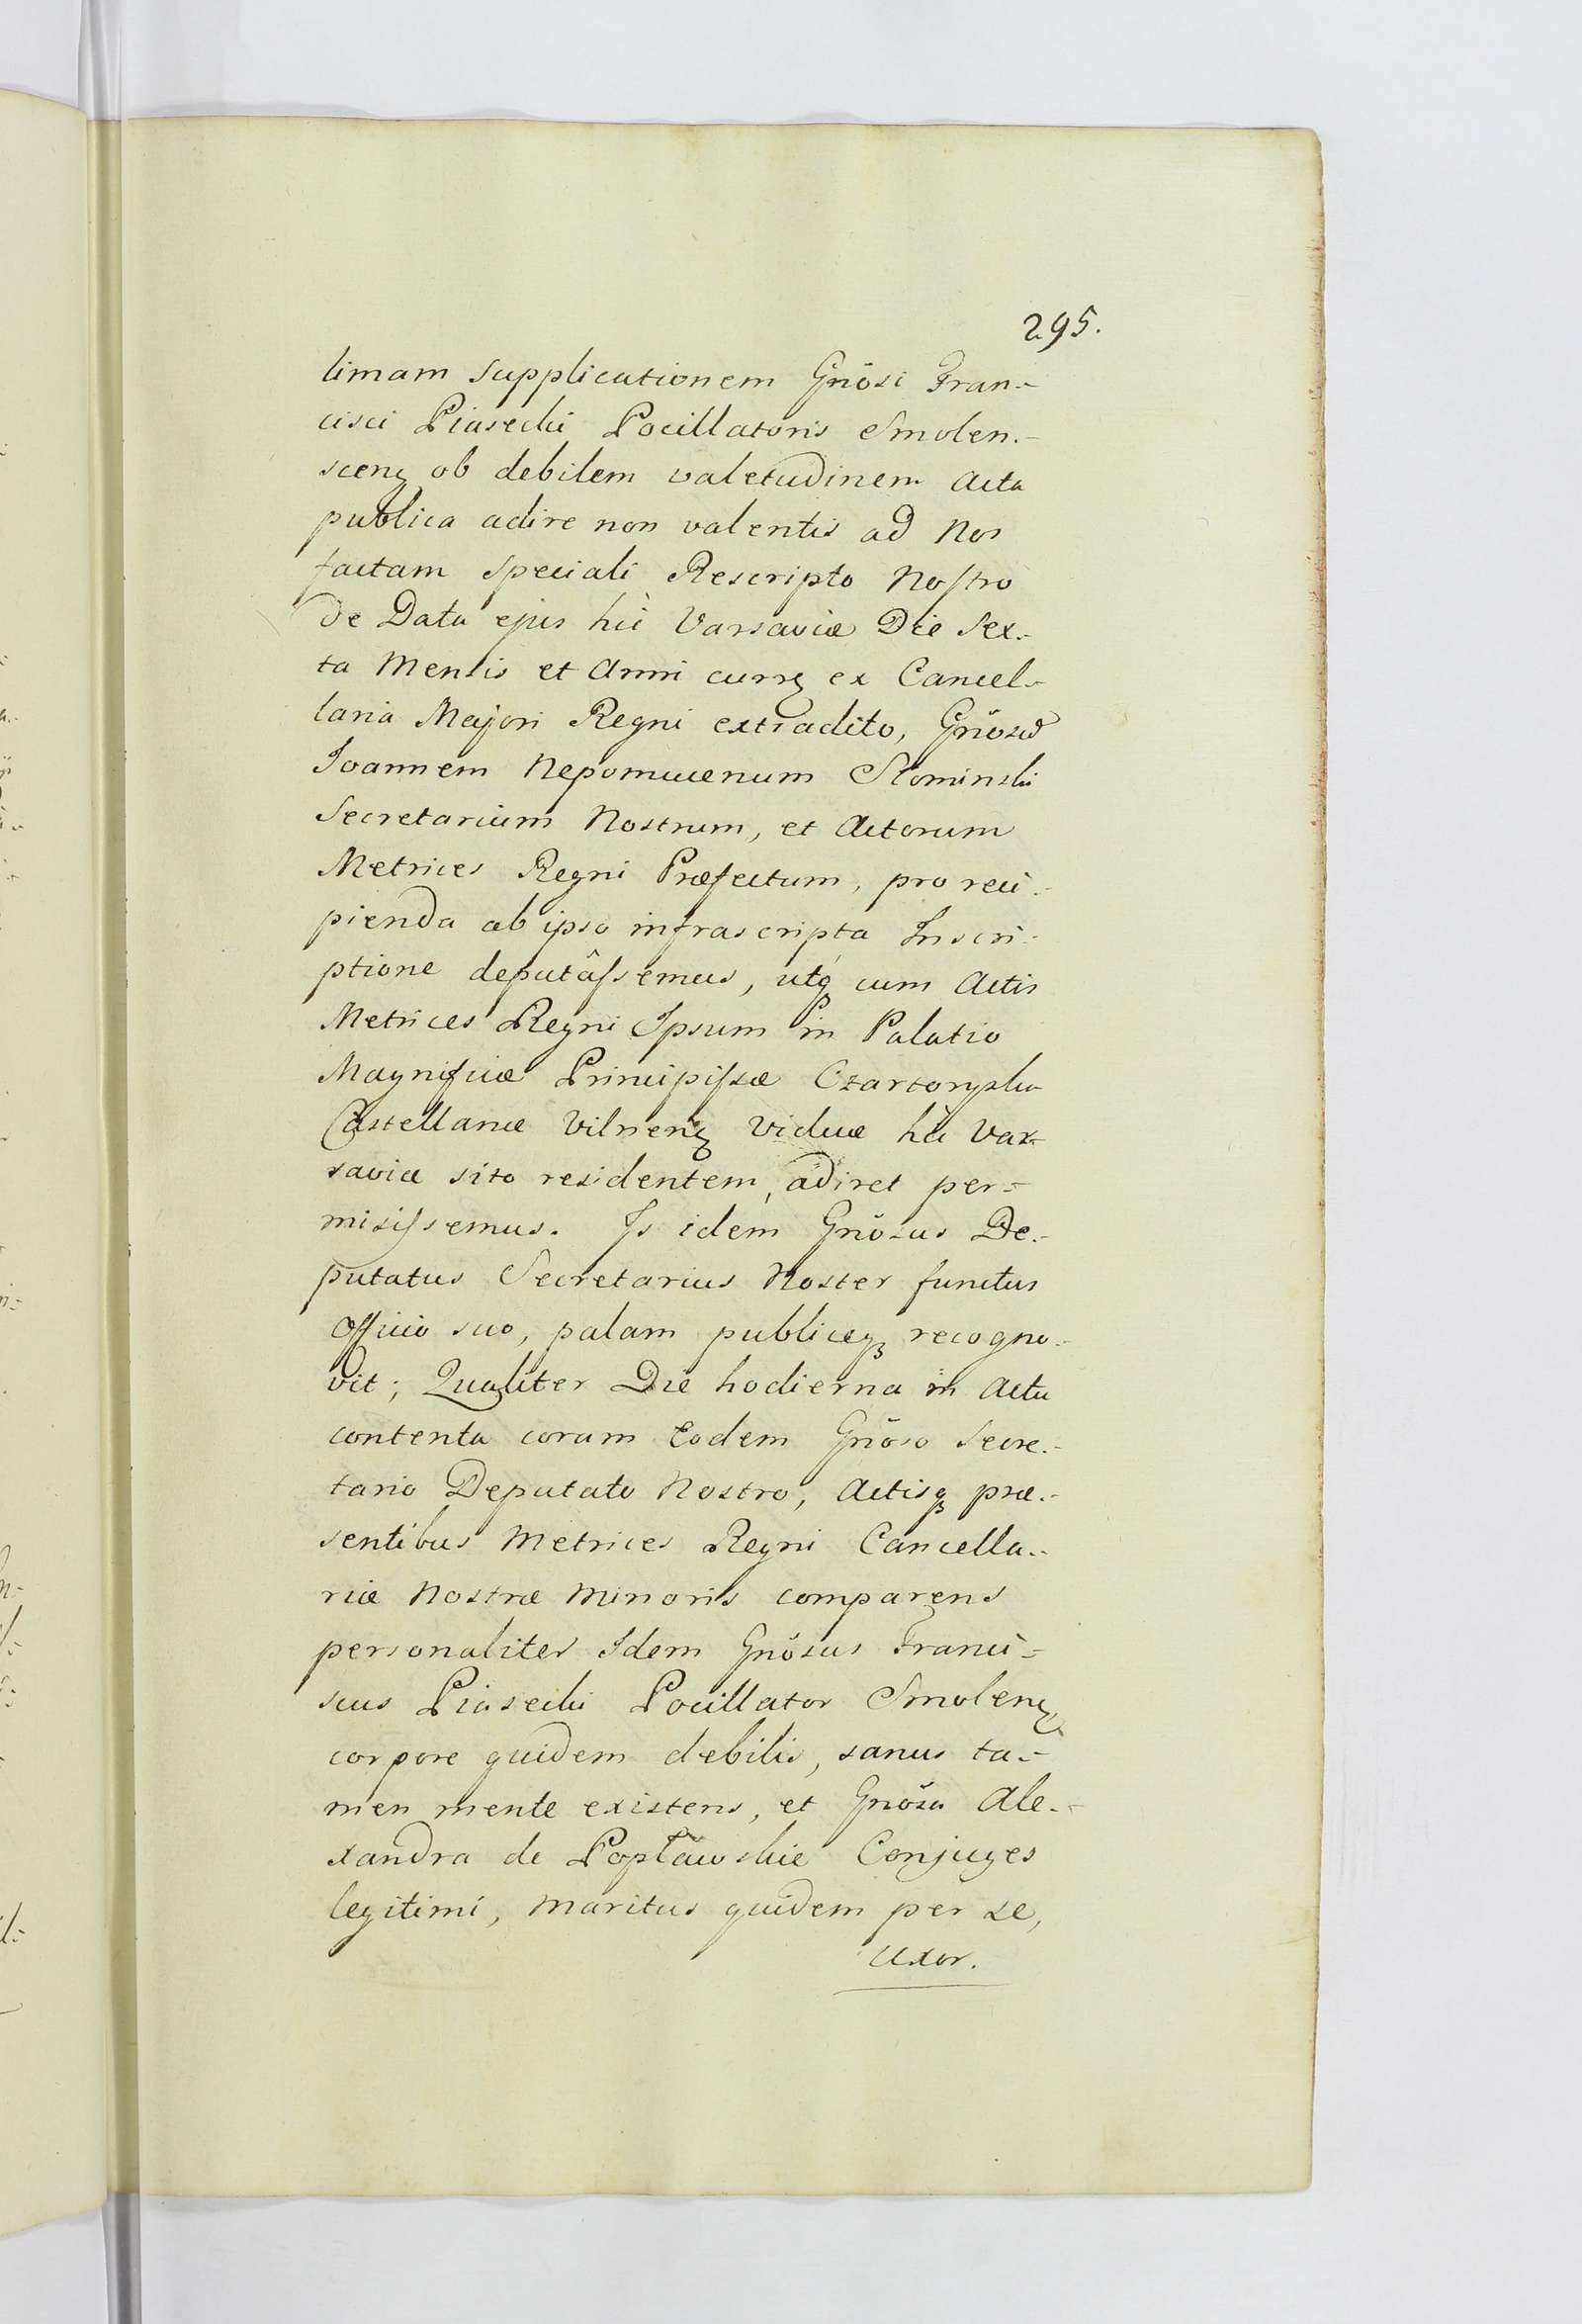 295.
limam Supplicationem Gnõsi Fran=
cisci Piasecki Pocillatoris Smolen=
scenꝫ ob debilem valetudinem Acta
publica adire non valentis ad Nos
factam Speciali Rescripto Nostro
de Data ejus hic Varsaviæ Die Sex=
ta Mensis et Anni currꝫ ex Cancel=
laria Majori Regni extradito, Gnõsũ
Joannem Nepomucenum Słominski
Secretarium Nostrum, et Actorum
Metrices Regni Præfectum, pro reci=
pienda ab ipso infrascripta Inscri=
ptione deputâssemus, utqꝫ cum Actis
Metrices Regni Ipsum in Palatio
Magnificæ Principissæ Czartoryska
Castellanæ Vilnenꝫ Viduæ hic Var=
saviæ sito residentem, adiret per=
misissemus. Is idem Gnõsus De=
putatus Secretarius Noster functus
Officio suo, palam publiceqꝫ recogno=
vit; Qualiter Die hodierna in Actu
contenta coram Eodem Gnõso Secre=
tario Deputato Nostro, Actisqꝫ præ=
sentibus Metrices Regni Cancella=
riæ Nostræ Minoris comparens
personaliter Idem Gnõsus Franci=
scus Piasecki Pocillator Smolenꝫ
corpore quidem debilis, sanus ta=
men mente existens, et Gnõsa Ale=
xandra de Popławskie Conjuges
legitimi, Maritus quidem per se,
Uxor.